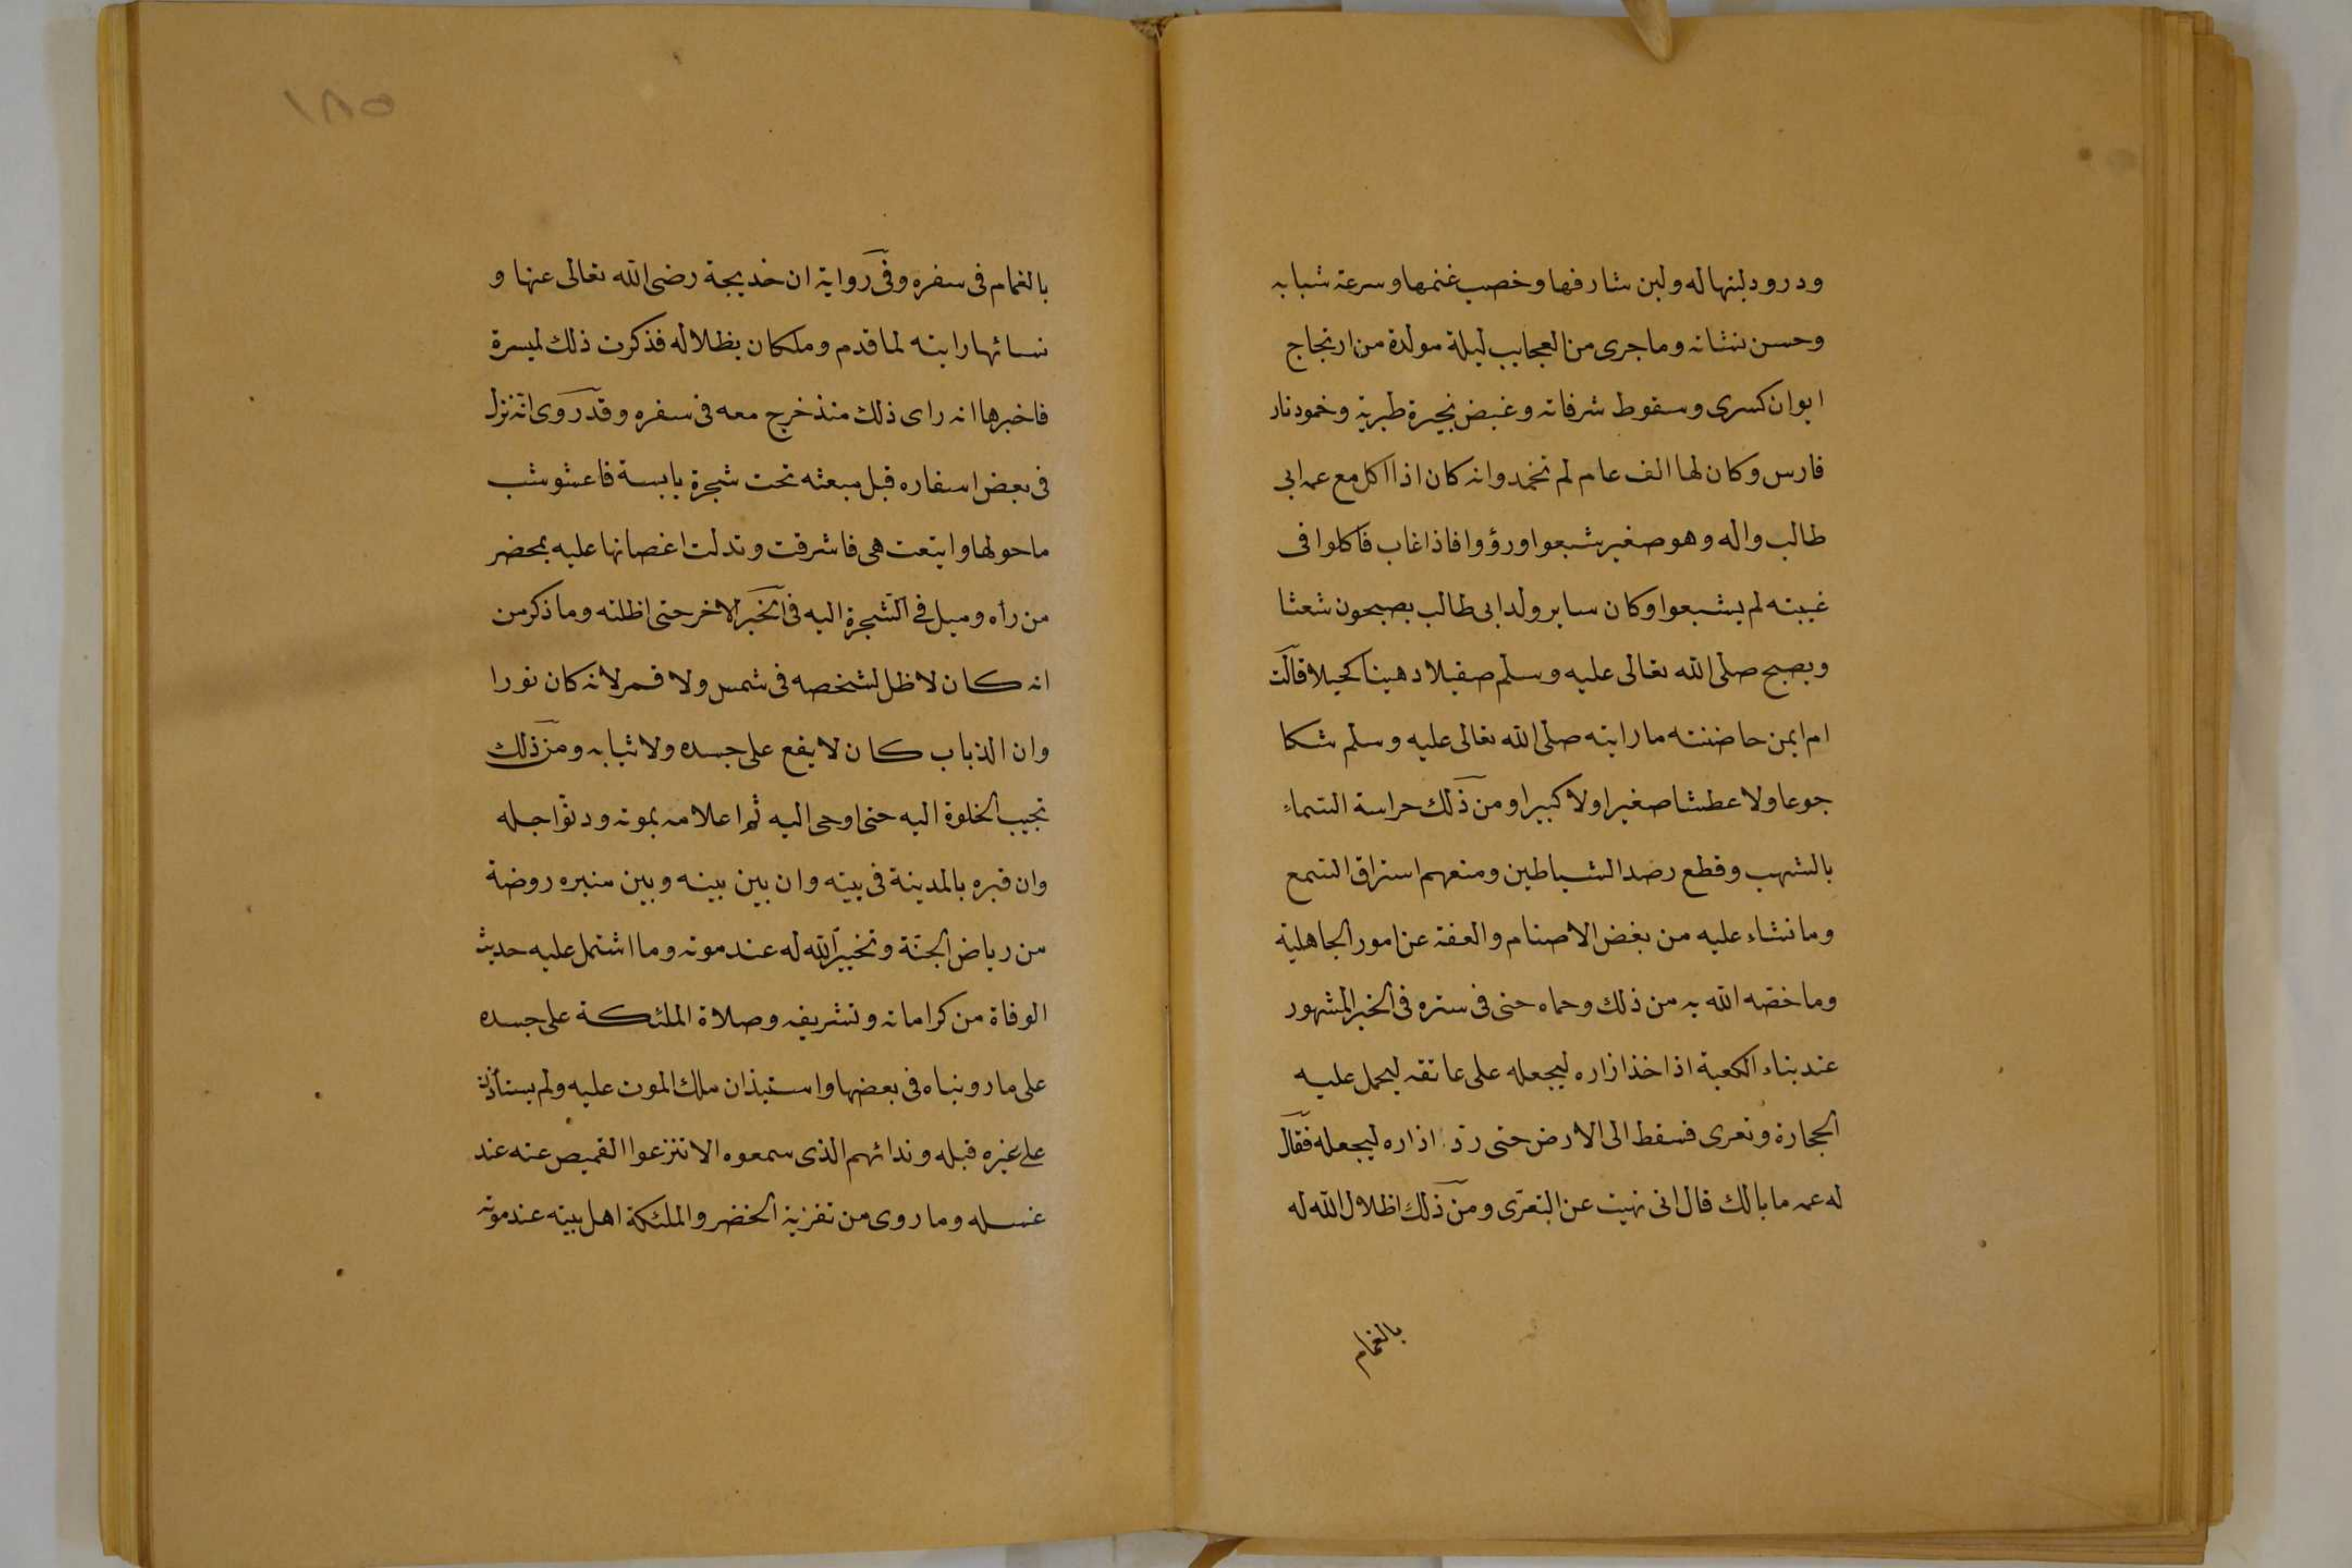 ودرود لبنها له ولبن شارفها وخصب غنمها وسرعة شبابه
وحسن نشاته وما جرى من العجايب ليلة مولدة من ارتجاج
ايوان كسرى وسقوط شرفاته وغيض بحيرة طبرية وخمود نار
فارس وكان لها الف عام لم تخمد وانه كان اذا اكل مع عمه ابى
طالب واله وهو صغير شبعوا ورؤوا فاذا غاب فاكلوا فى
غيبته لم يشبعوا وكان ساير ولد ابى طالب يصبحون شعثا
ويصبح صلى الله تعالى عليه وسلم صقيلا دهينا كحيلا قالت
ام ايمن حاضنته ما رايته صلى الله تعالى عليه وسلم شكا
جوعا ولا عطشا صغيرا ولا كبيرا ومن ذلك حراسة السماء
بالشهب وقطع رصد الشياطين ومنعهم استراق السمع
وما نشاء عليه من بغض الاصنام والعفة عن امور الجاهلية
وما خصه الله به من ذلك وحماه حتى فى ستره فى الخبر المشهور
عند بناء الكعبة اذا خذ ازاره ليجعله على عاتقه ليحمل عليه
الحجارة وتعرى فسقط الى الارض حتى رد ازاره ليجعله فقال
له عمه ما بالك قال انى نهيت عن التعرى ومن ذلك اظلال الله له
بالغمام
١٨٥
بالغمام فى سفره وفى رواية ان خديجة رضى الله تعالى عنها و
نسائها راينه لما قدم وملكان يظلاله فذكرت ذلك لميسرة
فاخبرها انه راى ذلك منذ خرج معه فى سفره وقد روى انه نزل
فى بعض اسفاره قبل مبعثه تحت شجرة يابسة فاعشوشب
ما حولها واينعت هى فاشرقت وتدلت اغصانها عليه بمحضر
من رأه وميل فى الشجرة اليه فى الخبر الاخر حتى اظلته وما ذكر من
انه كان لا ظل لشخصه فى شمس ولا قمر لانه كان نورا
وان الذباب كان لا يقع على جسده ولا ثيابه ومن ذلك
تحبيب الخلوة اليه حتى اوحى اليه ثم اعلامه بموته ودنو اجله
وان قبره بالمدينة فى بيته وان بين بيته وبين منبره روضة
من رياض الجنة وتخيير الله له عند موته وما اشتمل عليه حديث
الوفاة من كراماته وتشريفه وصلاة الملئكة على جسده
على ما رويناه فى بعضها واستيذان ملك الموت عليه ولم يستأذن
على غيره قبله وندائهم الذى سمعوه الا تنزعوا القميص عنه عند
غسله وما روى من تعزية الخضر والملئكة اهل بيته عند موته